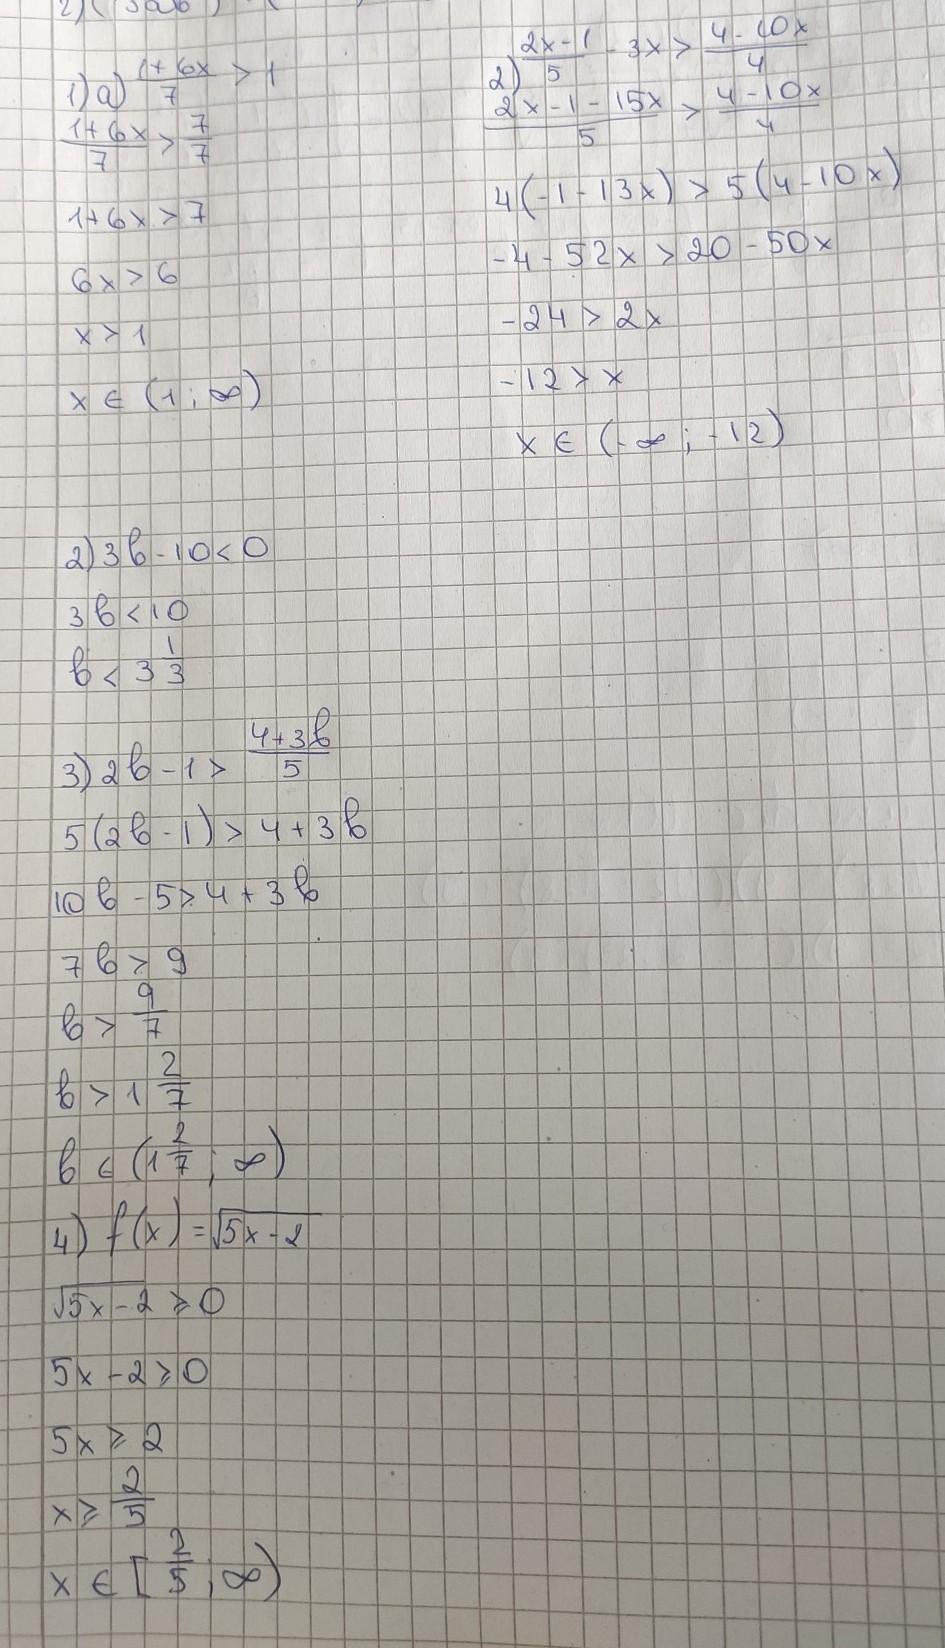 1) а) (1+6x)/7 > 1
(1+6x)/7 > 7/7
1+6x > 7
6x > 6
x > 1
x ∈ (1; ∞)
2) (2x-1)/5 - 3x > (4-10x)/4
(2x-1-15x)/5 > (4-10x)/4
4(-1-13x) > 5(4-10x)
-4-52x > 20-50x
-24 > 2x
-12 > x
x ∈ (-∞; -12)
2) 3b-10<0
3b<10
b < 3 1/3
3) 2b-1 > (4+3b)/5
5(2b-1) > 4+3b
10b-5 > 4+3b
7b > 9
b > 9/7
b > 1 2/7
b ∈ (1 2/7; ∞)
4) f(x) = √(5x-2)
√(5x-2) ⩾ 0
5x-2 ⩾ 0
5x ⩾ 2
x ⩾ 2/5
x ∈ [2/5; ∞)